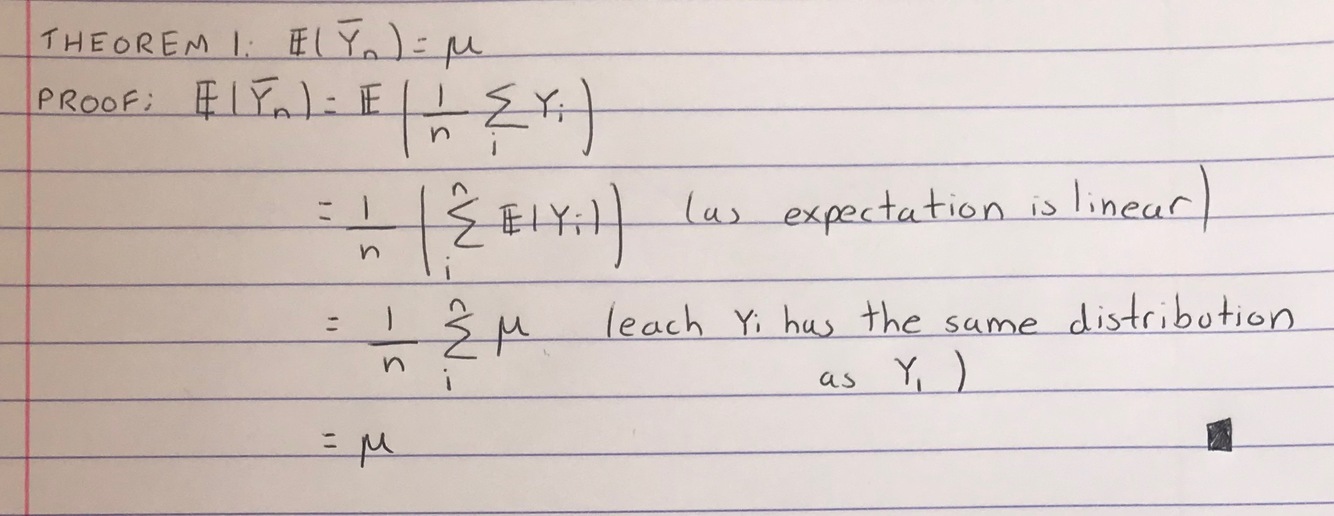 THEOREM 1: 𝔼(Ȳₙ) = μ
PROOF: 𝔼(Ȳₙ) = 𝔼(1/n ∑ᵢ Yᵢ)
= 1/n (∑ᵢⁿ 𝔼(Yᵢ)) (as expectation is linear)
= 1/n ∑ᵢⁿ μ (each Yᵢ has the same distribution
as Y₁)
= μ ■